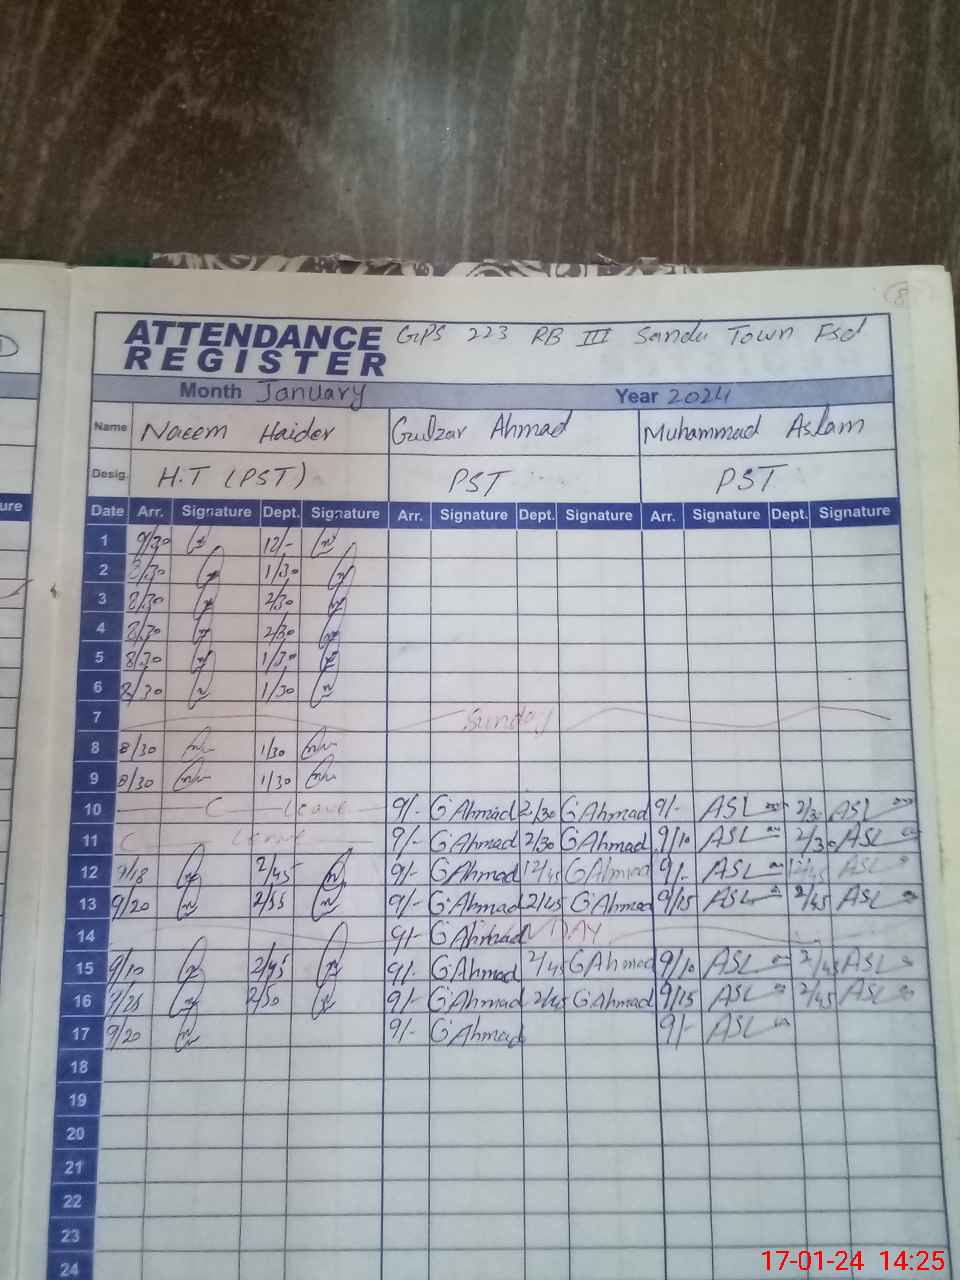 8
ATTENDANCE REGISTER GPS 223 RB III Sandu Town Fsd
Month January Year 2024
Name Naeem Haider Gulzar Ahmad Muhammad Aslam
Desig. H.T (PST) PST PST
ure
Date Arr. Signature Dept. Signature Arr. Signature Dept. Signature Arr. Signature Dept. Signature
1 9/30 12/-
2 8/30 1/30
3 8/30 2/30
4 8/30 2/30
5 8/30 1/30
6 8/30 1/30
7 Sunday
8 8/30 1/30
9 8/30 1/30
10 C Leave 9/- G Ahmad 2/30 G Ahmad 9/- ASL 2/30 ASL
11 C Leave 9/- G Ahmad 2/30 G Ahmad 9/10 ASL 2/30 ASL
12 2/45 9/- G Ahmad 12/45 G Ahmad 9/- ASL 12/45 ASL
13 9/20 2/55 9/- G Ahmad 2/45 G Ahmad 9/15 ASL 2/45 ASL
14 9/- G Ahmad DAY
15 9/10 2/45 9/- G Ahmad 2/45 G Ahmad 9/10 ASL 2/45 ASL
16 9/25 2/50 9/- G Ahmad 2/45 G Ahmad 9/15 ASL 2/45 ASL
17 9/20 9/- G Ahmad 9/- ASL
18
19
20
21
22
23
24
17-01-24 14:25